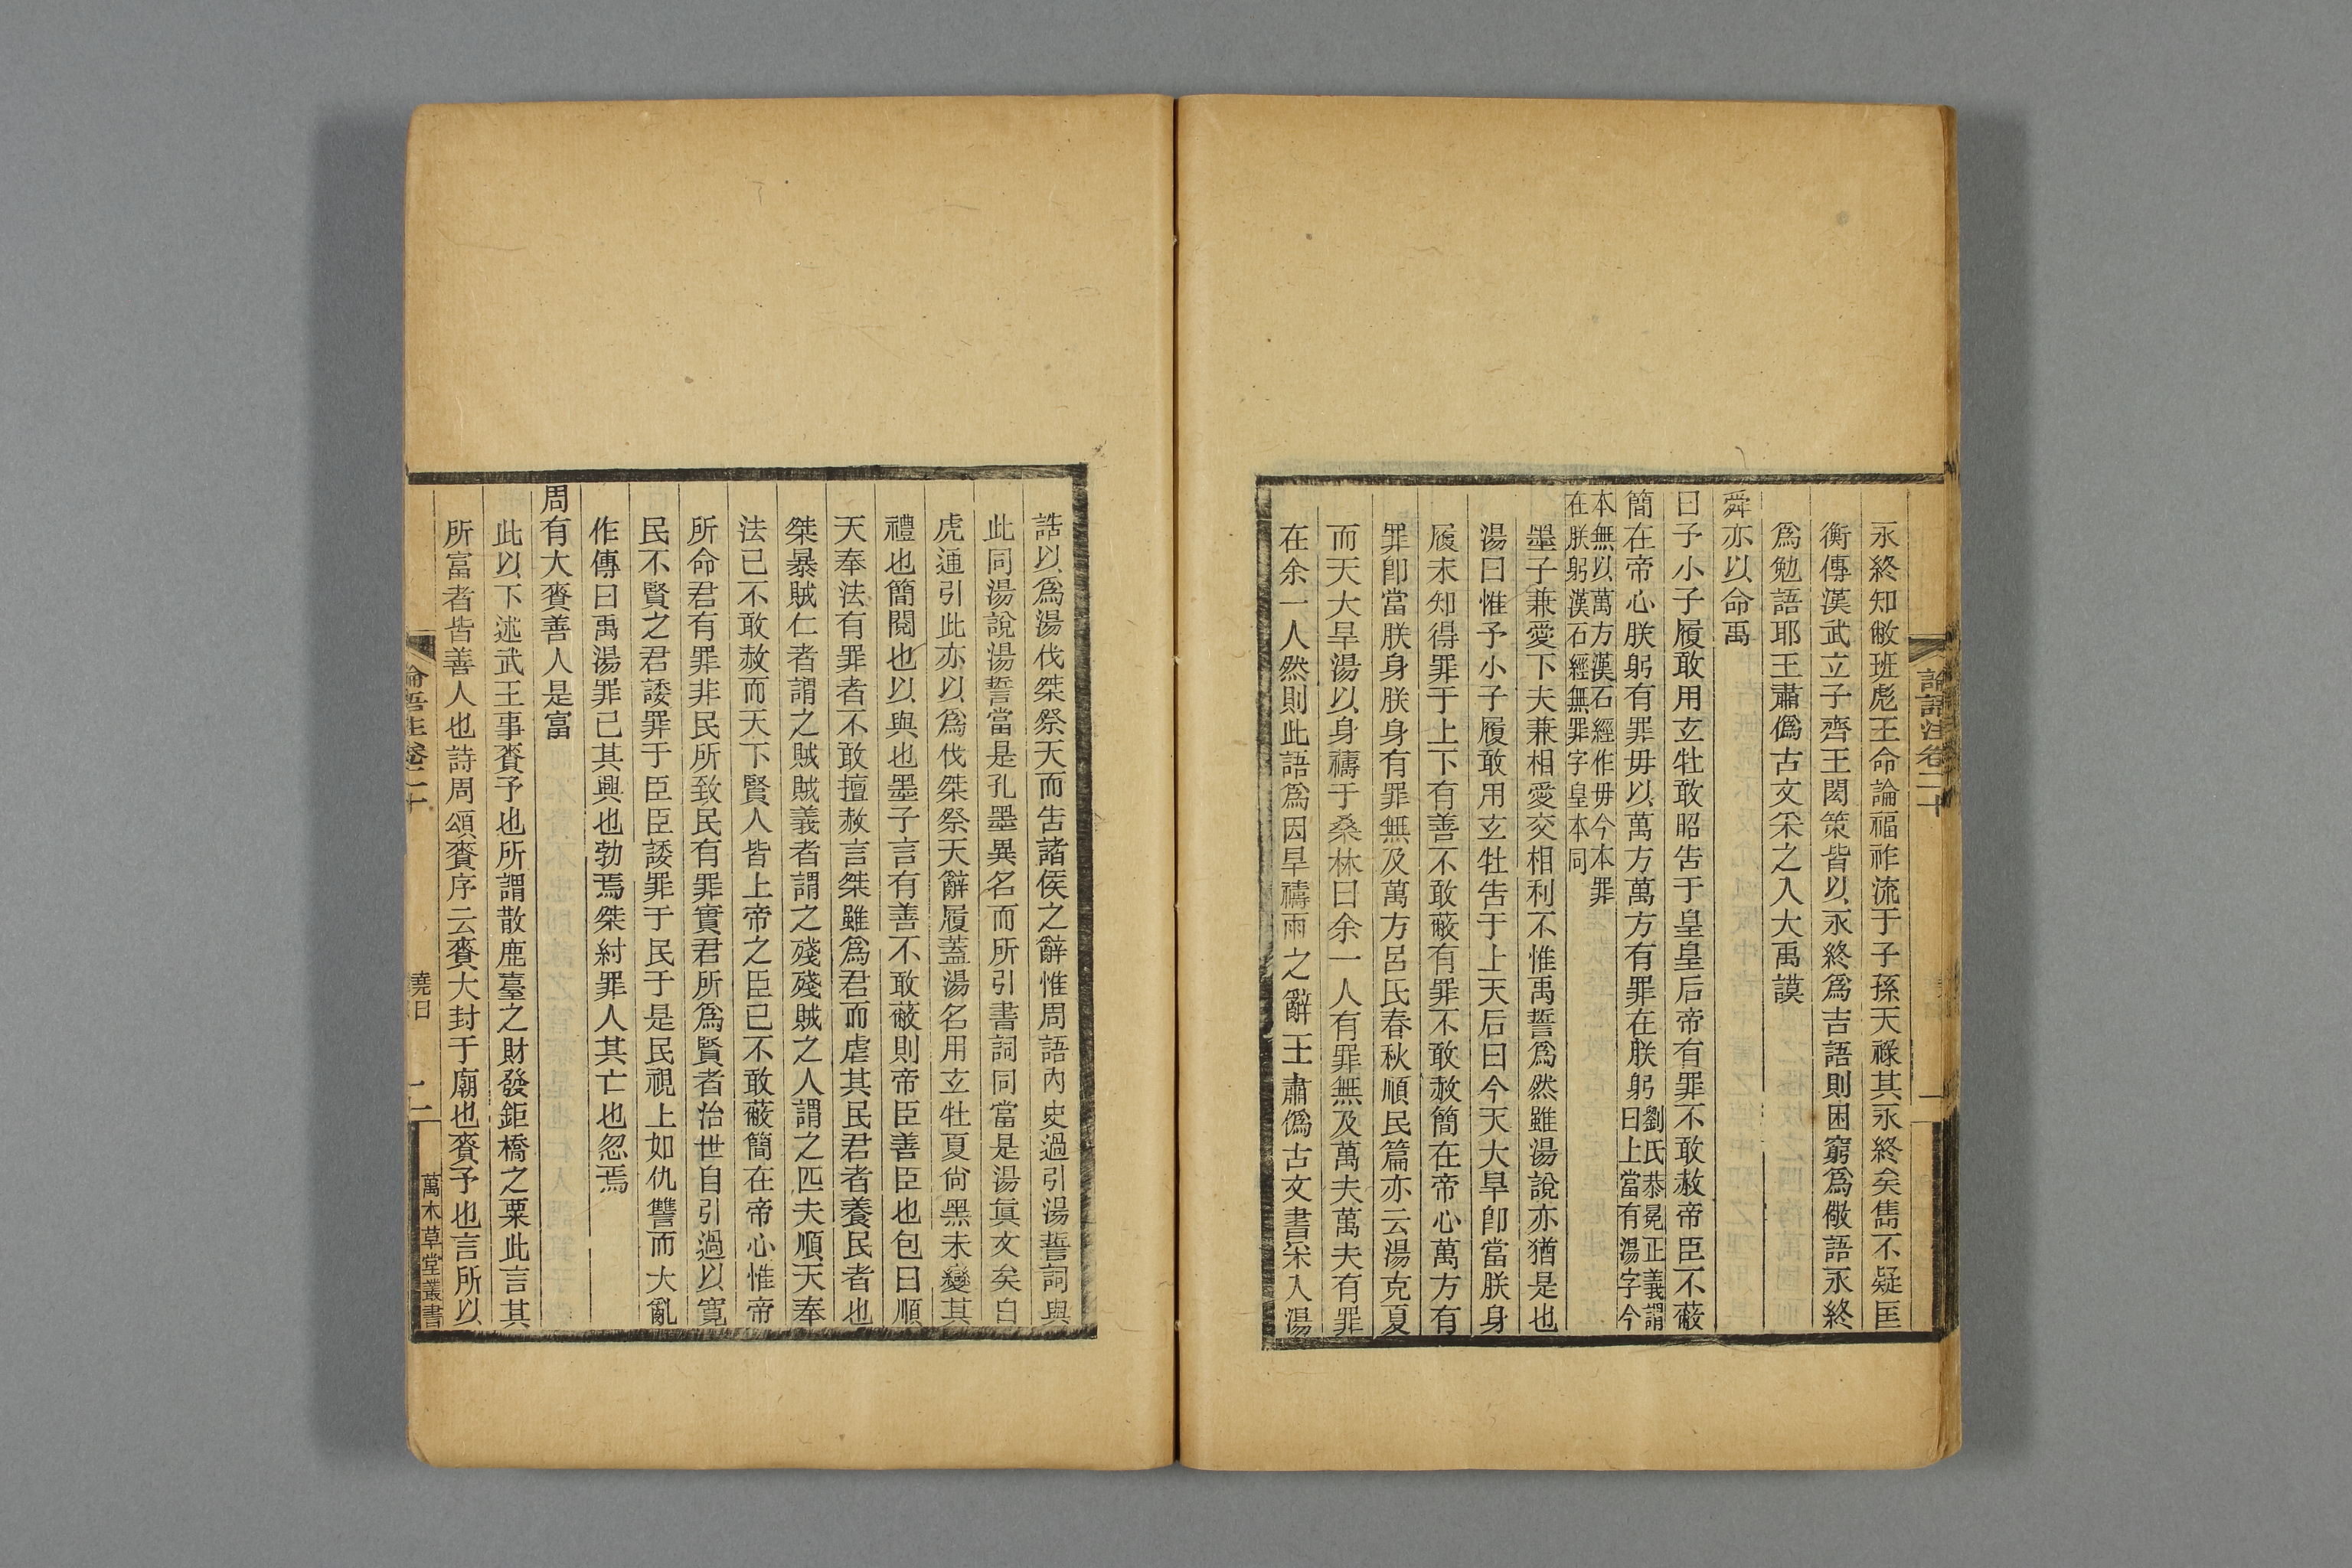 永終知敝班彪王命論福祚流于子孫天祿其永終矣雋不疑匡
衡傳漢武立子齊王閎策皆以永終爲吉語則困窮爲儆語永終
爲勉語耶王肅僞古文采之入大禹謨
舜亦以命禹
曰予小子履敢用玄牡敢昭告于皇皇后帝有罪不敢赦帝臣不蔽
簡在帝心朕躬有罪毋以萬方萬方有罪在朕躬劉氏恭冕正義謂
曰上當有湯字今
本無以萬方漢石經作毋今本罪
在朕躬漢石經無罪字皇本同
墨子兼愛下夫兼相愛交相利不惟禹誓爲然雖湯說亦猶是也
湯曰惟予小子履敢用玄牡告于上天后曰今天大旱卽當朕身
履未知得罪于上下有善不敢蔽有罪不敢赦簡在帝心萬方有
罪卽當朕身朕身有罪無及萬方呂氏春秋順民篇亦云湯克夏
而天大旱湯以身禱于桑林曰余一人有罪無及萬夫萬夫有罪
在余一人然則此語爲因旱禱雨之辭王肅僞古文書采入湯
誥以爲湯伐桀祭天而告諸侯之辭惟周語內史過引湯誓詞與
此同湯說湯誓當是孔墨異名而所引書詞同當是湯眞文矣白
虎通引此亦以爲伐桀祭天辭履蓋湯名用玄牡夏尙黑未變其
禮也簡閱也以與也墨子言有善不敢蔽則帝臣善臣也包曰順
天奉法有罪者不敢擅赦言桀雖爲君而虐其民君者養民者也
桀暴賊仁者謂之賊賊義者謂之殘殘賊之人謂之匹夫順天奉
法已不敢赦而天下賢人皆上帝之臣已不敢蔽簡在帝心惟帝
所命君有罪非民所致民有罪實君所爲賢者治世自引過以寬
民不賢之君諉罪于臣臣諉罪于民于是民視上如仇讐而大亂
作傳曰禹湯罪己其興也勃焉桀紂罪人其亡也忽焉
周有大賚善人是富
此以下述武王事賚予也所謂散鹿臺之財發鉅橋之粟此言其
所富者皆善人也詩周頌賚序云賚大封于廟也賚予也言所以
論語注卷二十
堯曰
二
萬木草堂叢書